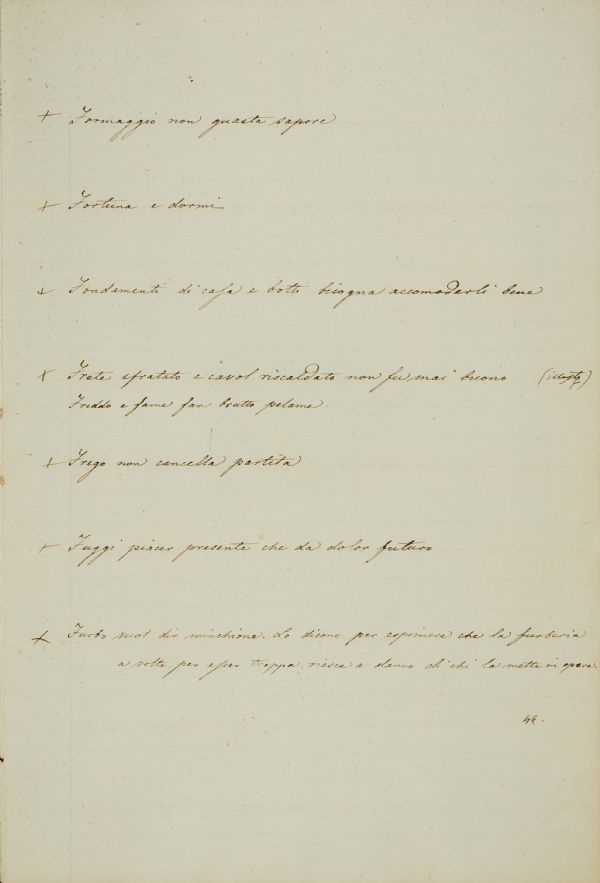 + Formaggio non guasta sapore
+ Fortuna e dormi
+ Fondamenti di casa e botti bisogna accomodarli bene
+ Frate sfratato e cavol riscaldato non fu mai buono
Freddo e fame fan brutto pelame
+ Frego non cancella partita
+ Fuggi piacer presente che da dolor futuro
+ Furbo vuol dir minchione. Lo dicono per esprimere che la furberia
a volte, per esser troppa, riesce a danno di chi la mette in opera.
46.